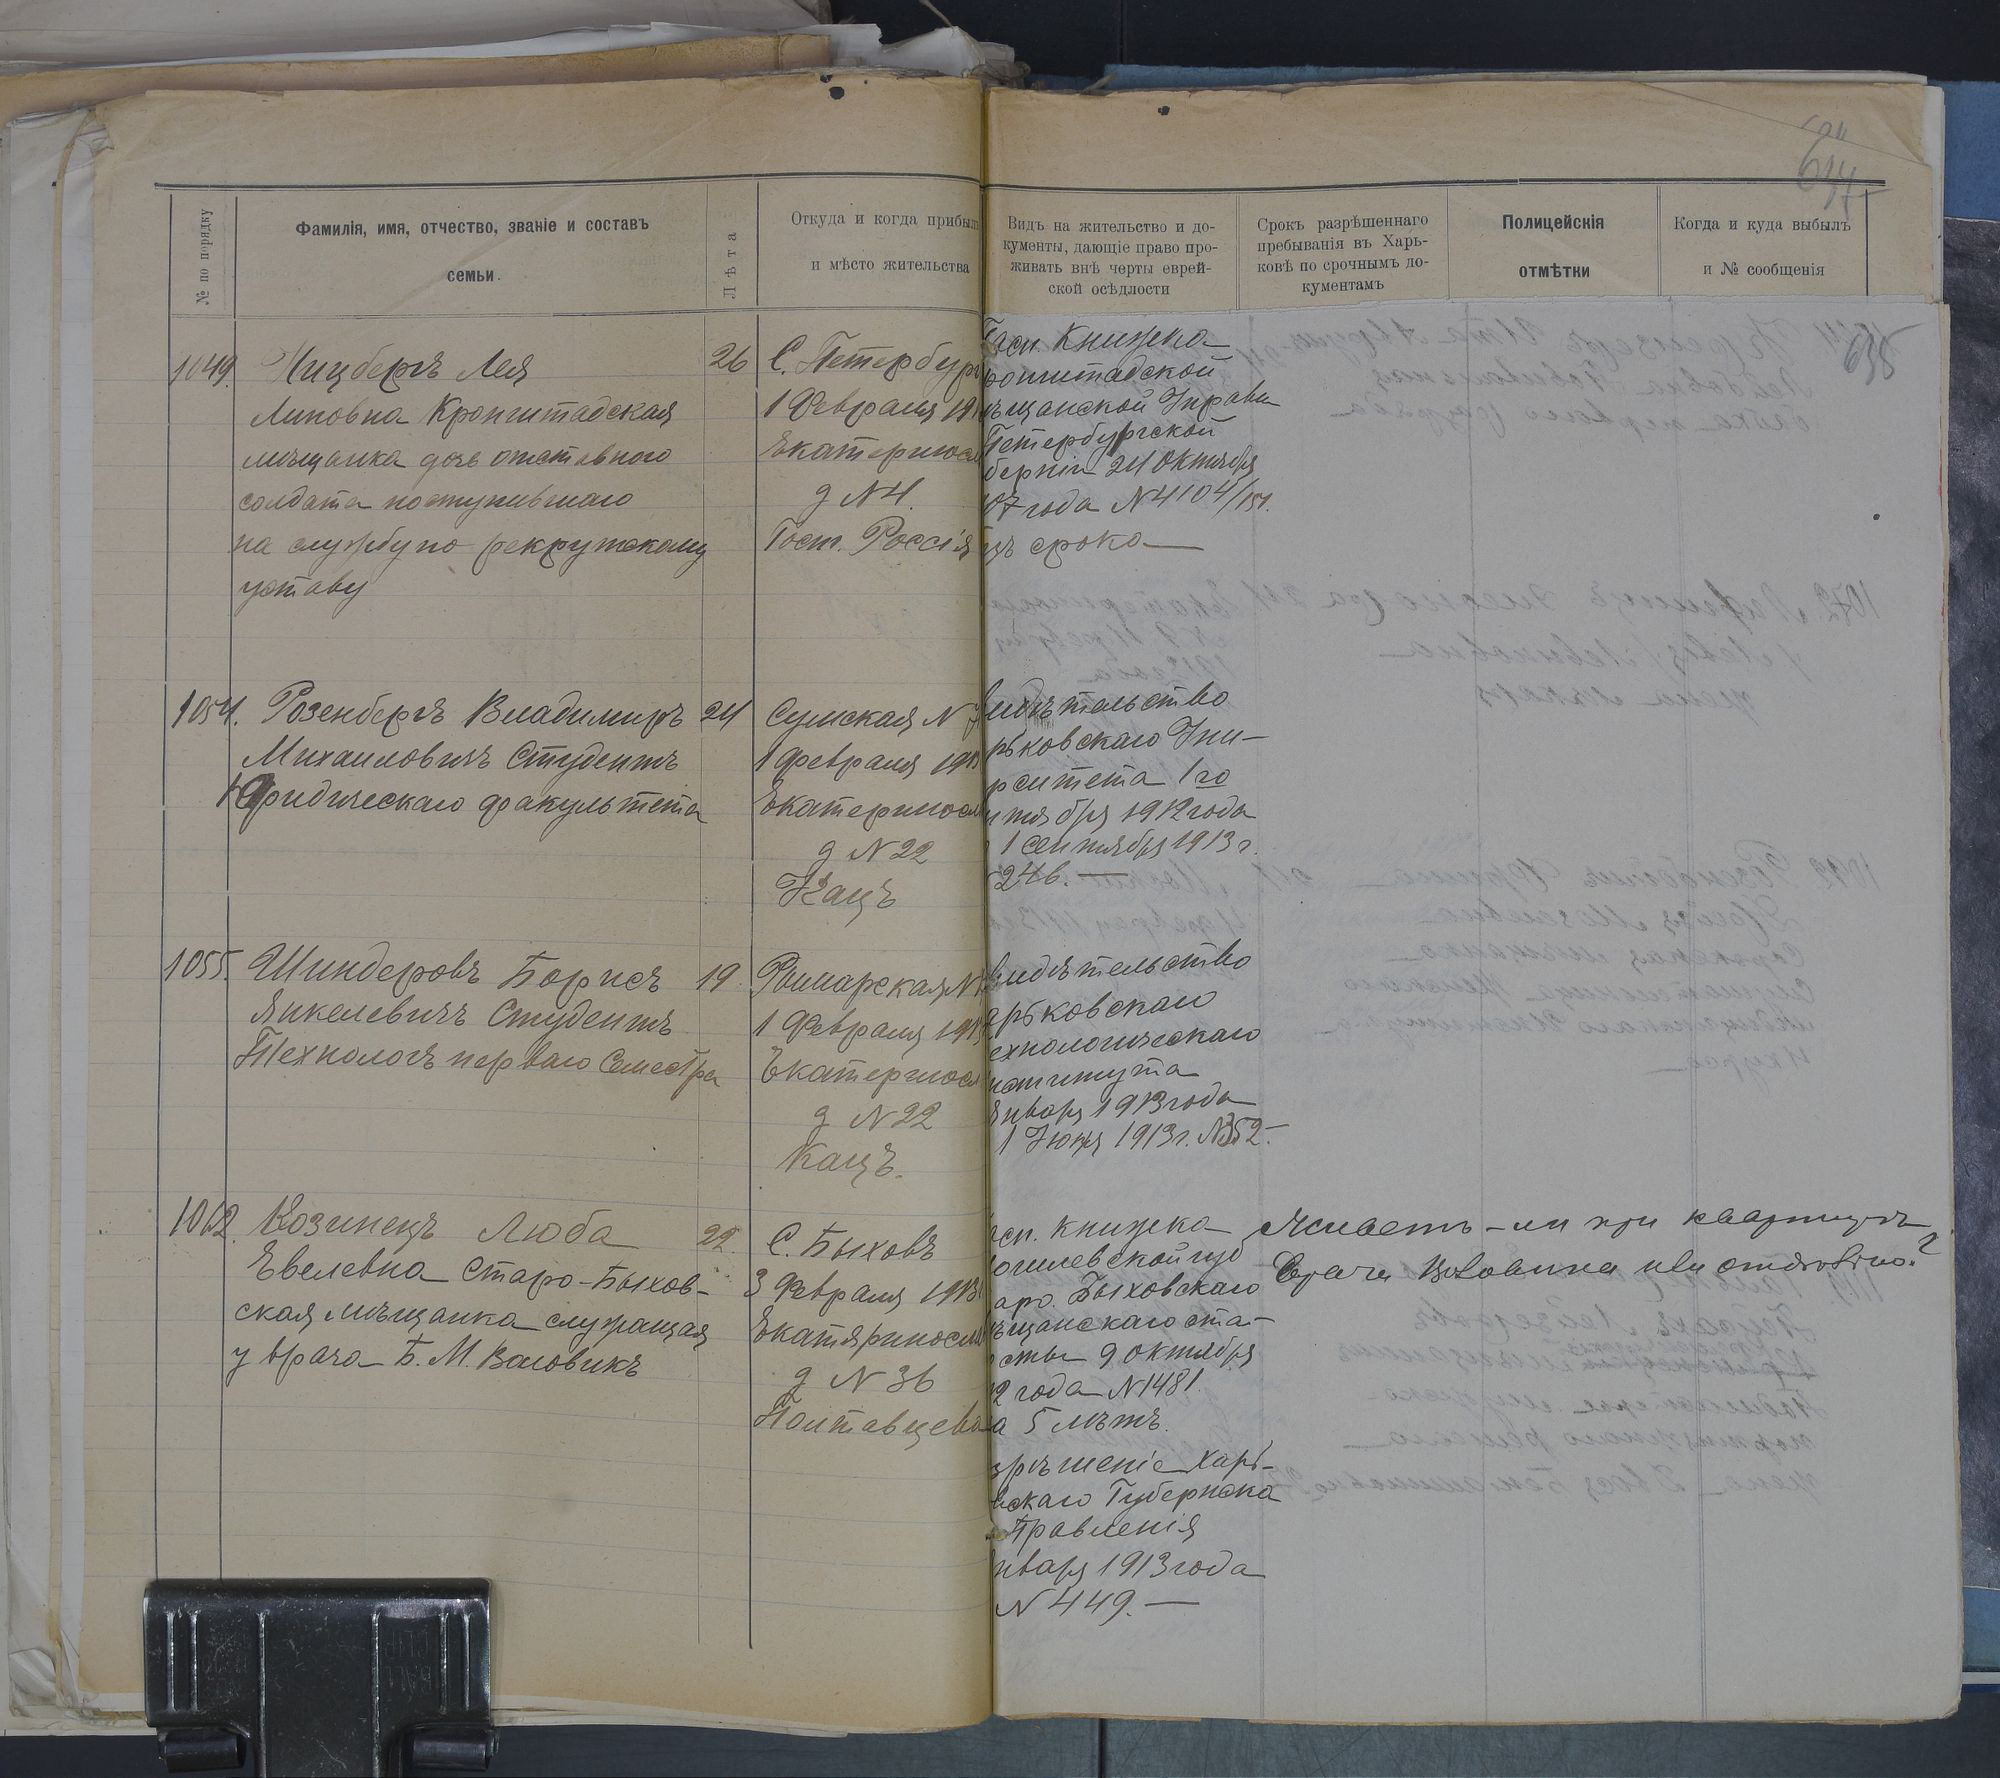 694
635
№ по порядку
Фамилія, имя, отчество, званіе и составъ
семьи.
Лѣта
Откуда и когда прибылъ
и мѣсто жительства
Видъ на жительство и до-
кументы, дающіе право про-
живать внѣ черты еврей-
ской осѣдлости
Срокъ разрѣшеннаго
пребыванія въ Харь-
ковѣ по срочнымъ до-
кументамъ
Полицейскія
отмѣтки
Когда и куда выбылъ
и № сообщенія
1049. Ницбергъ Лея
Липовна Кронштадская
мѣщанка дочь отставного
солдата поступившаго
на службу по рекрутскому
уставу
26
С. Петербургъ
1 Февраля 19
Екатериносл
д N 4.
Гост. Россія
Пасп. Книжка
ронштадской
ѣщанской Управы
Петербургской
берніи 24 Октября
07 года N 4104/151.
зъ срока —
1054. Розенбергъ Владимиръ
Михаиловичъ Студентъ
Юридическаго факультета
24
Сумская N 7
1 Февраля 1913
Екатериносл
д N 22
Кацъ
видѣтельство
рьковскаго Уни-
рситета 1го
нтября 1912 года
1 Сентября 1913 г.
24в. —
1055. Шиндеровъ Борисъ
Янкелевичъ Студентъ
Технологъ перваго Семестра
19
Рымарская N
1 Февраля 1913
Екатериносл
д N 22
Кацъ.
видѣтельство
арьковскаго
ехнологическаго
нститута
Января 1913 года
1 Июня 1913 г. N 352. –
1062. Козинецъ Люба
Евелевна Старо-Быхов-
ская мѣщанка служащая
у врача Б. М. Воловикъ
22.
С. Быховъ
3 Февраля 1913
Екатяриносла
д N 36
Полтавцева
асп. Книжка
огилевской губ
аро. Быховскаго
ѣщанскаго ста-
осты 9 Октября
12 года N 1481.
на 5 лѣтъ.
зрѣшеніе Харь-
вскаго Губернска
Правленія
нваря 1913 года
N 449. —
Живетъ-ли при квартирѣ
Врача Воловика или отдѣльно?